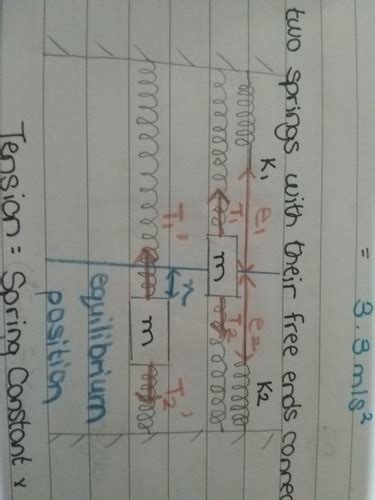 = 3.3 m/s²
two springs with their free ends
K₁ K₂
e₁ e₂
T₁ m T₂
n
T₁' m T₂'
equilibrium
position
Tension = Spring Constant x